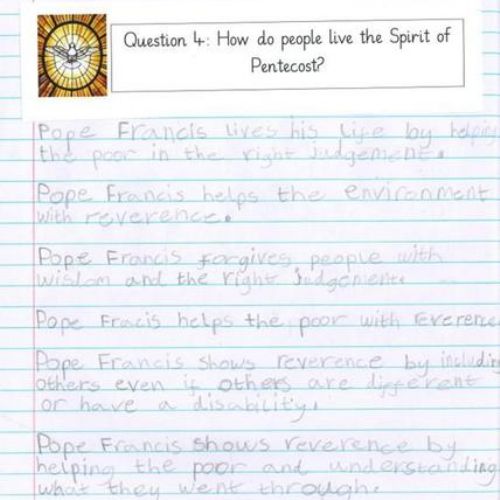 Question 4: How do people live the Spirit of
Pentecost?
Pope Francis lives his life by helping
the poor in the right judgement.
Pope Francis helps the environment
with reverence.
Pope Francis forgives people with
wisdom and the right judgement.
Pope Fracis helps the poor with reverence
Pope Francis shows reverence by including
others even if others are different
or have a disability.
Pope Francis shows reverence by
helping the poor and understanding
what they went through.